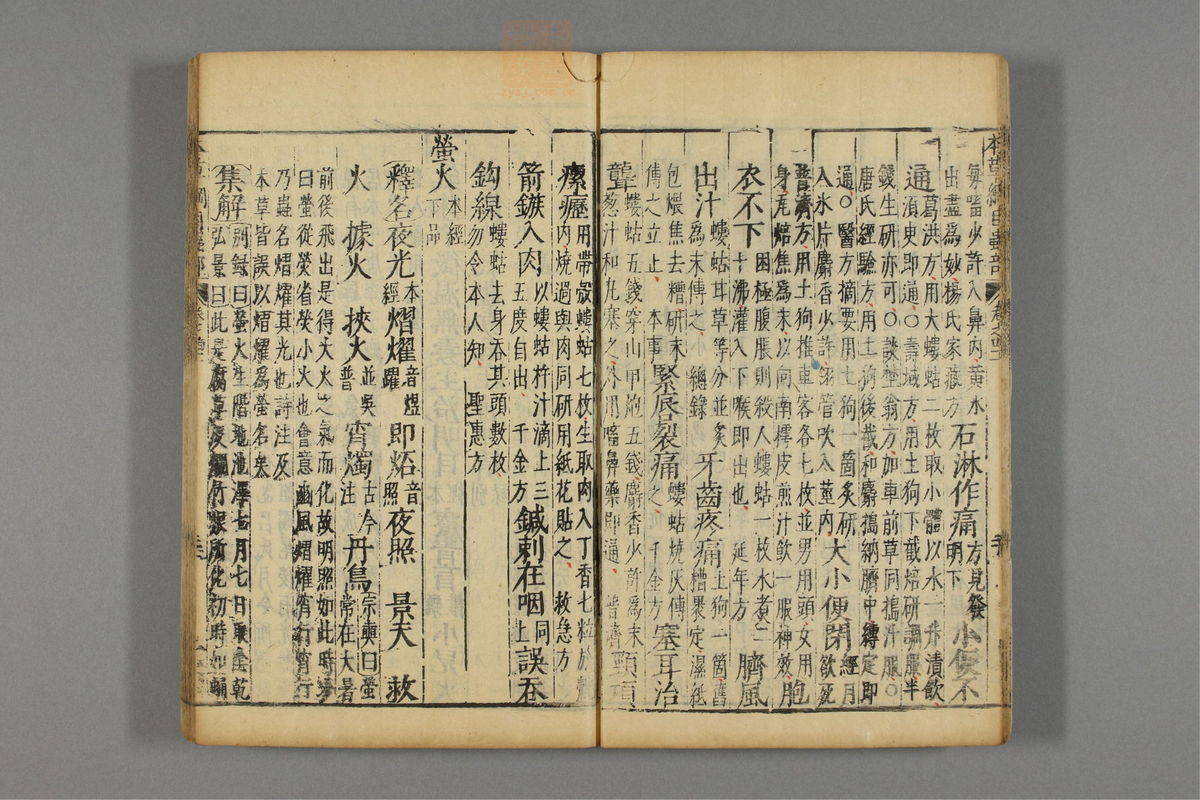 本草綱目蟲部
每㗜少許入鼻內黃水
出盡為妙楊氏家藏方
石淋作痛
方見發
明下
小便不
通
葛洪方用大螻蛄二枚取小體以水一升漬飲
須臾即通○壽域方用土狗下截焙研調服半
錢生研亦可○談埜翁方加車前草同搗汁服○
唐氏經驗方用土狗後截和麝搗納臍中縛定即
通○醫方摘要用土狗一箇炙研
入氷片麝香少許翎管吹入莖內
大小便閉
經月
欲死
普濟方用土狗推車客各七枚並男用頭女用
身瓦焙焦為末以向南樗皮煎汁飲一服神效
胞
衣不下
困極腹脹則殺人螻蛄一枚水煮二
十沸灌入下喉即出也 延年方
臍風
出汁
螻蛄甘草等分並炙
為末傅之 總錄
牙齒疼痛
土狗一箇舊
糟裹定濕紙
包煨焦去糟研末
傅之立止 本事
緊唇裂痛
螻蛄燒灰傅
之 千金方
塞耳治
聾
螻蛄五錢穿山甲炮五錢麝香少許為末
葱汁和丸塞之外用㗜鼻藥即通 普濟
頸項
瘰癧
用帶殼螻蛄七枚生取肉入丁香七粒於殼
內燒過與肉同研用紙花貼之 救急方
箭鏃入肉
以螻蛄杵汁滴上三
五度自出 千金方
鍼刺在咽
同
上
誤吞
鉤線
螻蛄去身吞其頭數枚
勿令本人知 聖惠方
螢火
本經
下品
釋名夜光
本
經
熠燿
音煜
躍
即炤
音
照
夜照 景天 救
火 據火 挾火
並吳
普
宵燭
古今
注
丹鳥
宗奭曰螢
常在大暑
前後飛出是得大火之氣而化故明照如此時珍
曰螢從熒省熒小火也會意豳風熠燿宵行宵行
乃蟲名熠燿其光也詩注及
本草皆誤以熠燿為螢名矣
集解
別錄曰螢火生階地池澤七月七日取陰乾
弘景曰此是腐草及爛竹根所化初時如蛹